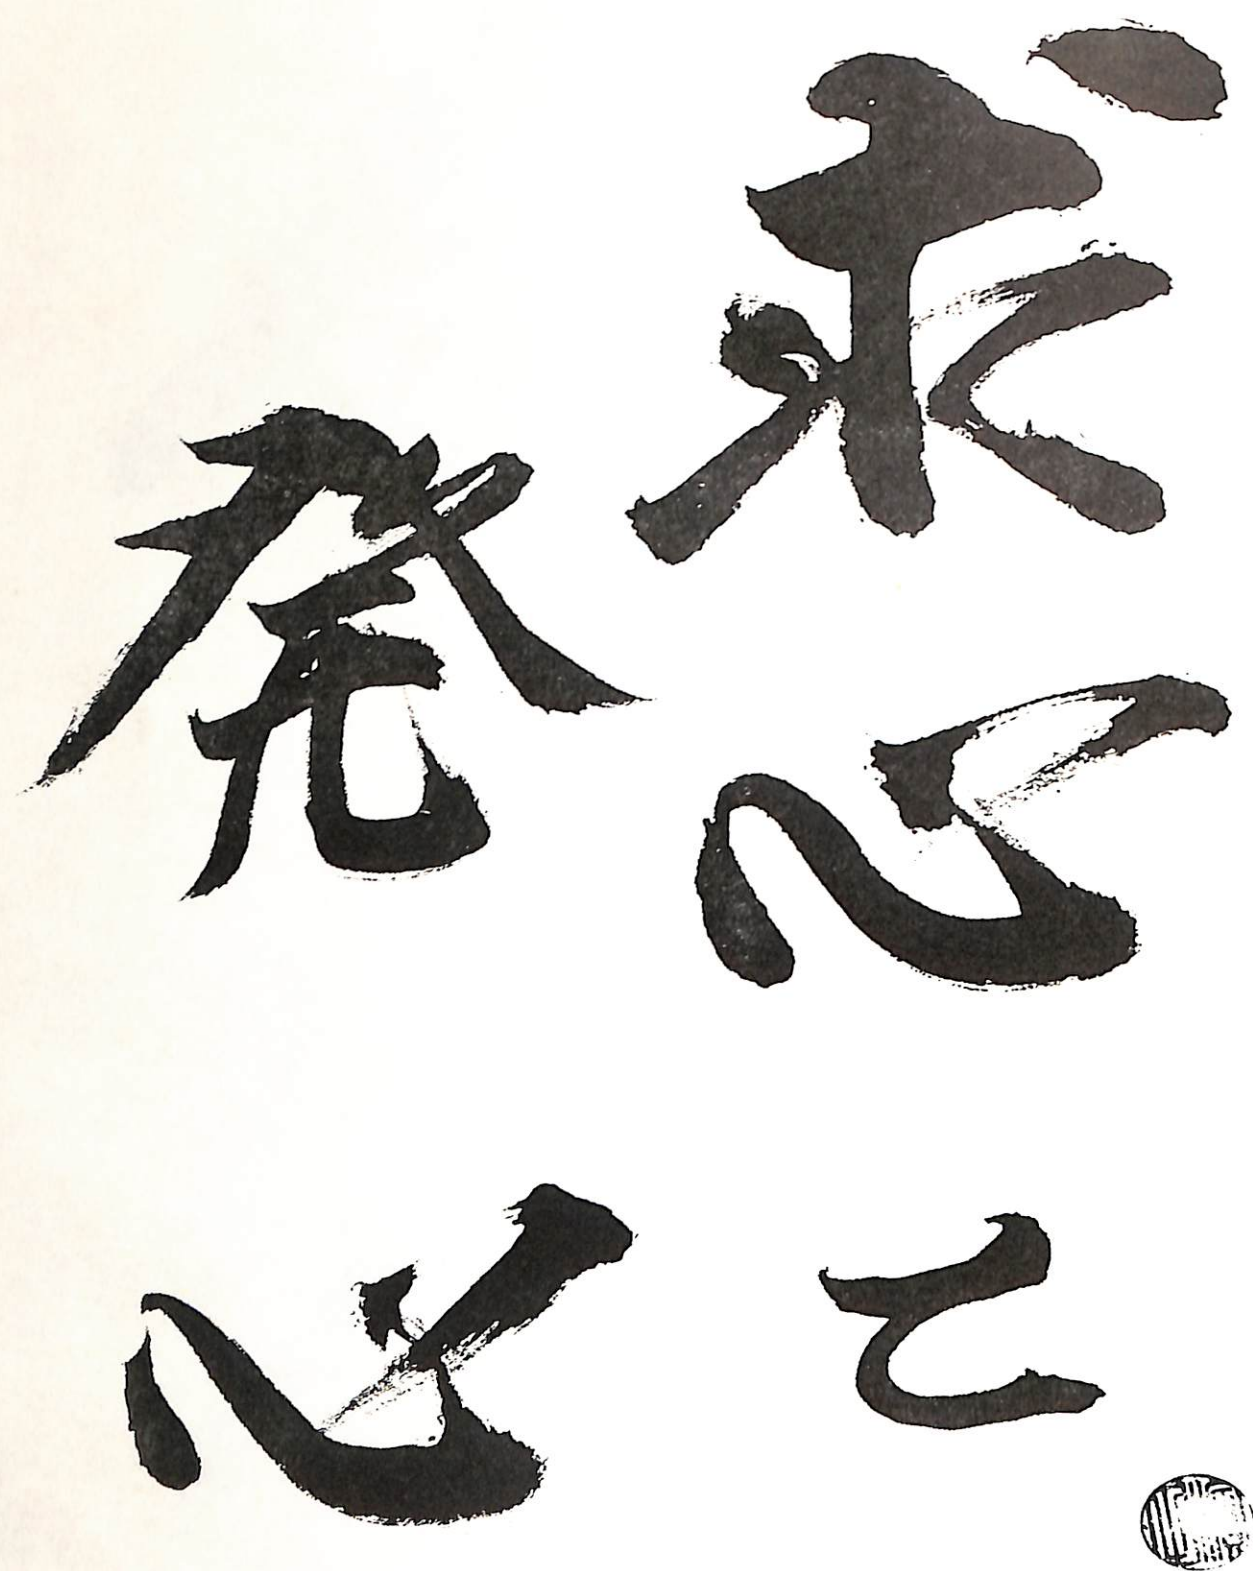 求心と
発心